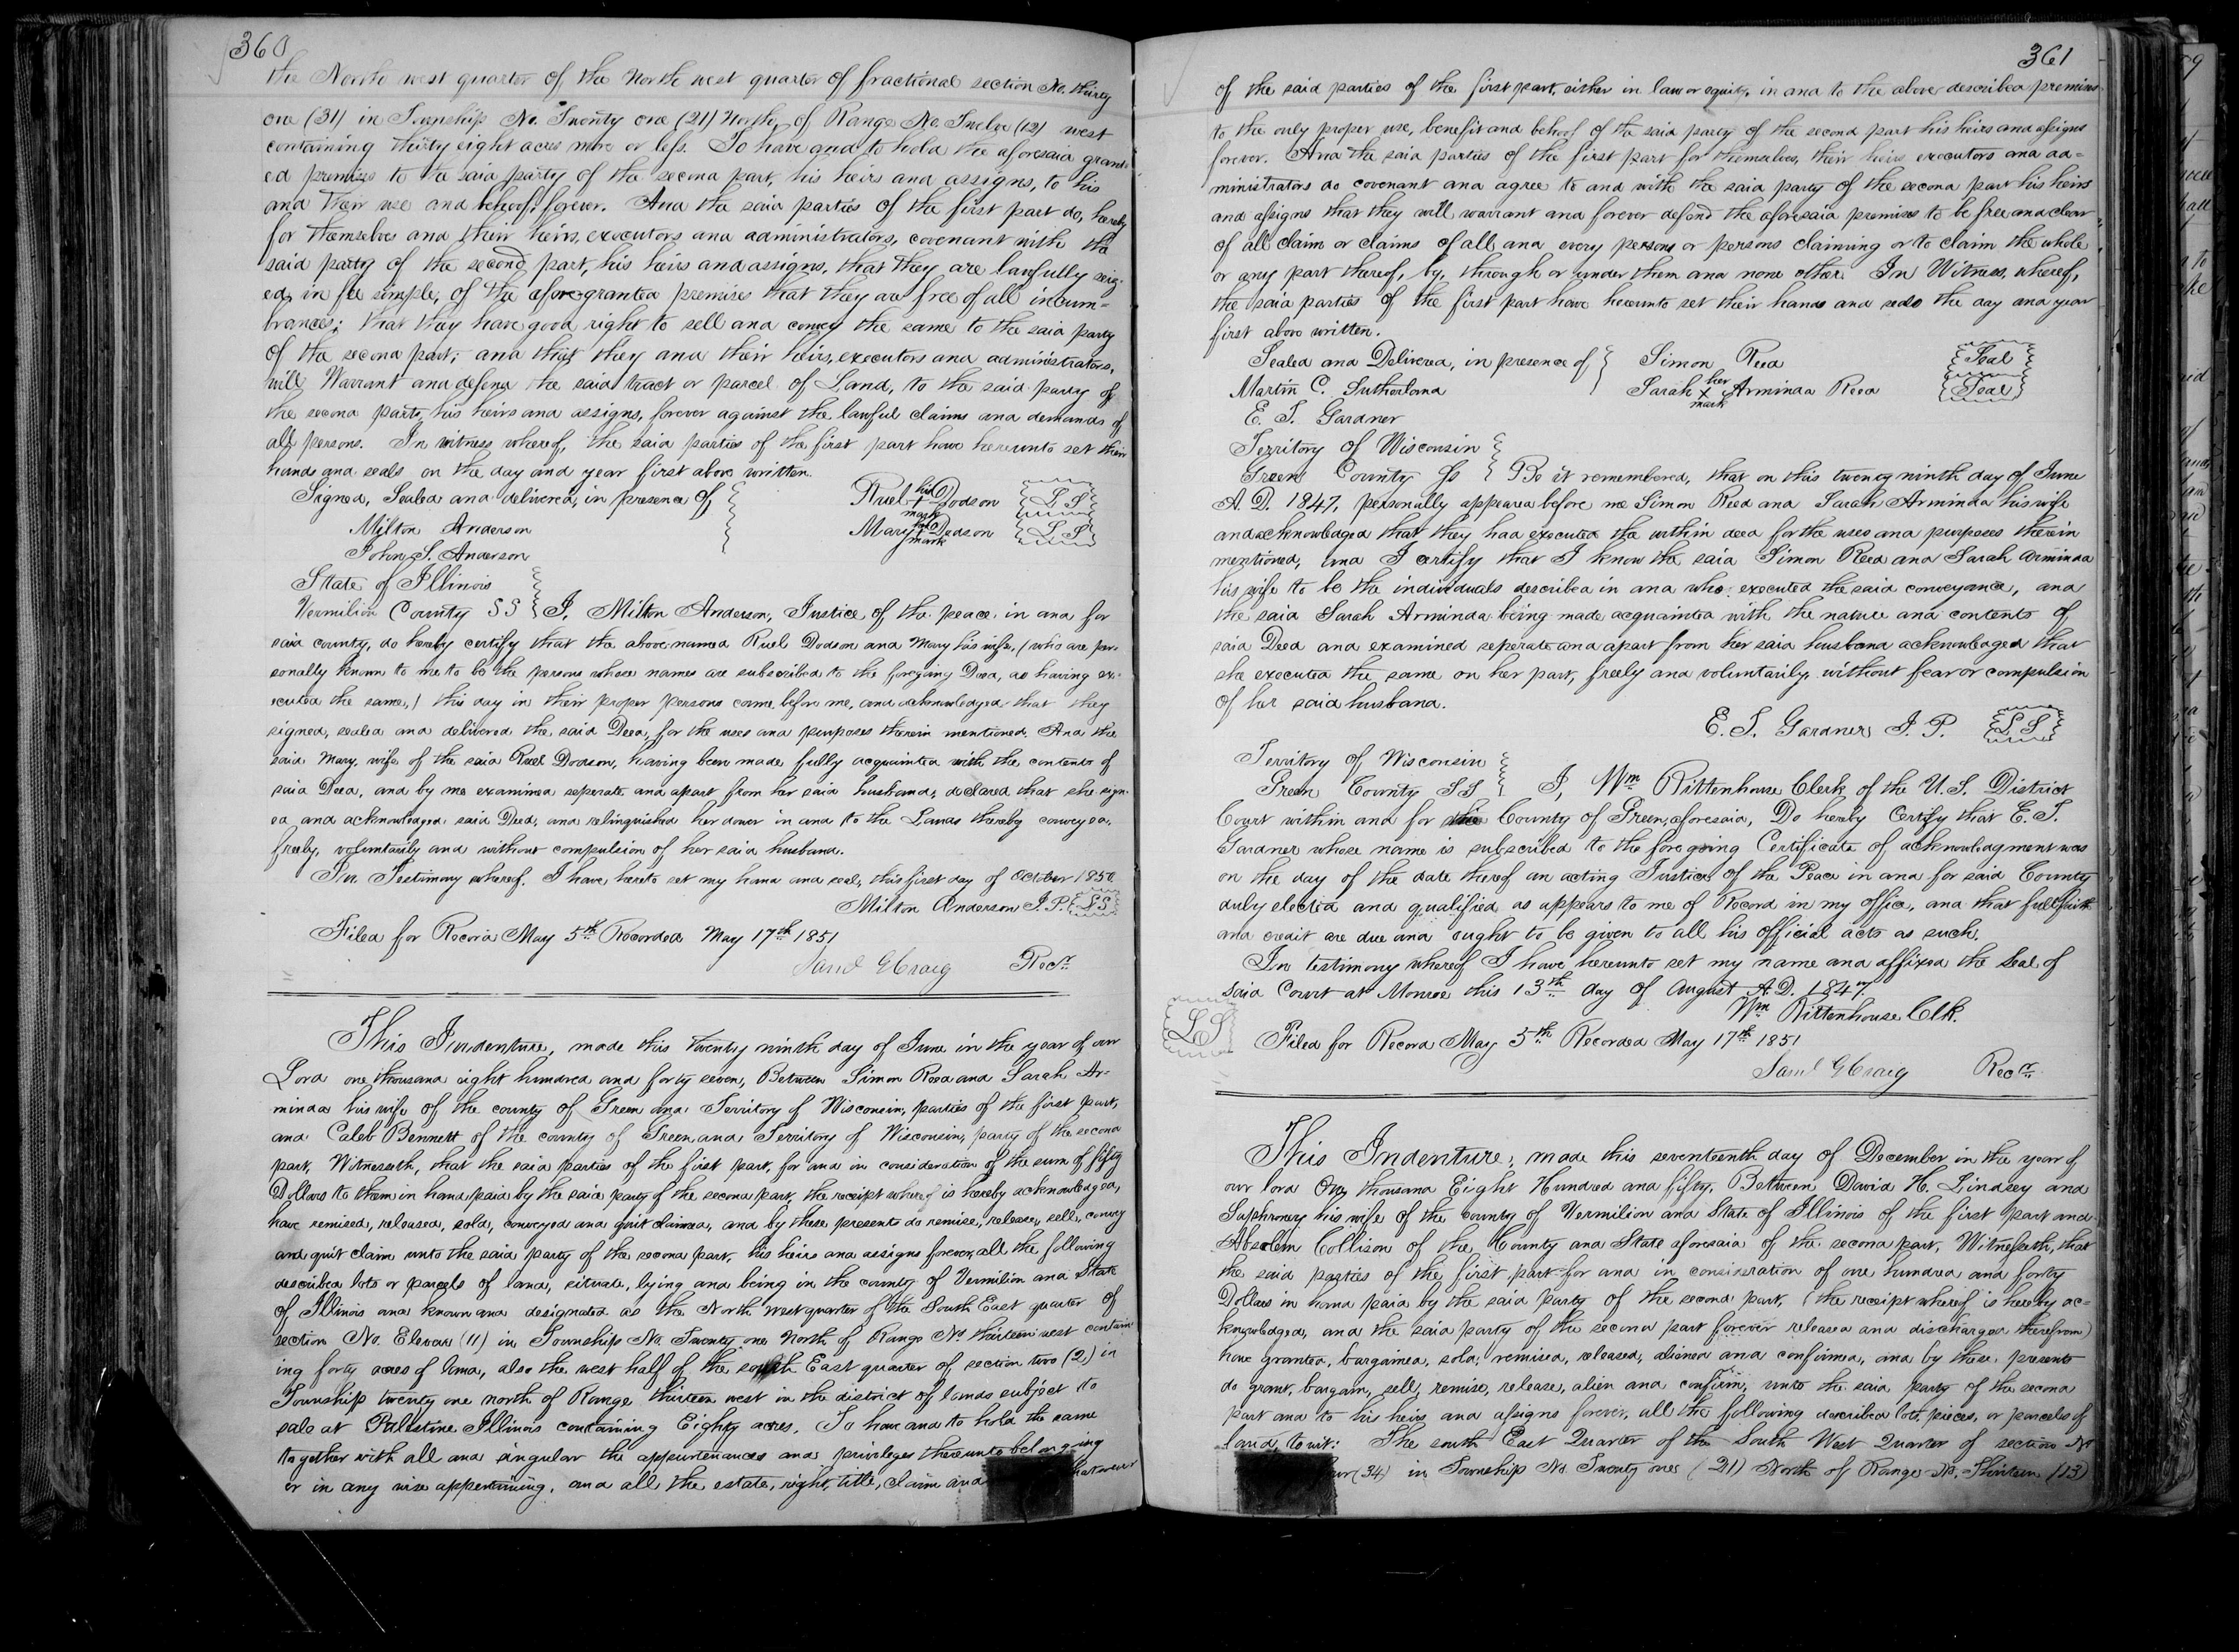 360
the North west quarter of the North west quarter of fractional section No. thirty
one (31) in Township No. Twenty one (21) North, of Range No. Twelve (12) west
containing thirty eight acres more or less. To have and to hold the aforesaid grant-
ed premises to the said party of the second part, his heirs and assigns, to his
and their use and behoof, forever. And the said parties of the first part do, hereby
for themselves and their heirs, executors and administrators, covenant with the
said party of the second part, his heirs and assigns, that they are lawfully seiz-
ed, in fee simple, of the afore granted premises that they are free of all incum-
brances; that they have good right to sell and convey the same to the said party
of the second part; and that they and their heirs, executors and administrators,
will Warrant and defend the said tract or parcel of Land, to the said party of
the second party, his heirs and assigns, forever against the lawful claims and demands of
all persons. In witness whereof, the said parties of the first part have hereunto set their
hands and seals on the day and year first above written.
Signed, Sealed and delivered, in presence of Ruel his + mark Dodson L S
Milton Anderson Mary her + mark Dodson L S
John S. Anderson
State of Illinois
Vermilion County SS I, Milton Anderson, Justice of the peace in and for
said county, do hereby certify that the above named Ruel Dodson and Mary his wife, (who are per-
sonally known to me to be the persons whose names are subscribed to the foregoing Deed, as having ex-
ecuted the same,) this day in their proper persons came before me, and acknowledged that they
signed, sealed and delivered the said Deed, for the uses and purposes therein mentioned. And the
said Mary, wife of the said Ruel Dodson, having been made fully acquainted with the contents of
said Deed, and by me examined seperate and apart from her said husband, declared that she sign-
ed and acknowledged said Deed, and relinquished her dower in and to the Lands thereby conveyed,
freely, voluntarily and without compulsion of her said husband.
In Testimony whereof, I have hereto set my hand and seal, this first day of October 1850
Milton Anderson J. P. L S
Filed for Record May 5th Recorded May 17th 1851
Saml G Craig Recr.
This Indenture, made this Twenty ninth day of June in the year of our
Lord one thousand eight hundred and forty seven, Between Simon Reed and Sarah Ar-
minda his wife of the county of Green and Territory of Wisconsin, parties of the first part,
and Caleb Bennett of the county of Green and Territory of Wisconsin, party of the second
part, Witnesseth, that the said parties of the first part, for and in consideration of the sum of fifty
Dollars to them in hand paid by the said party of the second part, the receipt whereof is hereby acknowledged,
have remised, released, sold, conveyed and quit claimed, and by these presents do remise, release, sell, convey
and quit claim unto the said party of the second part, his heirs and assigns forever, all the following
described lots or parcels of land, situate, lying and being in the county of Vermilion and State
of Illinois and known and designated as the North West quarter of the South East quarter of
section No. Eleven (11) in Township No. Twenty one North of Range No. thirteen west contain
ing forty acres of land, also the west half of the south East quarter of section two (2) in
Township twenty one north of Range thirteen west in the district of lands subject to
sale at Palestine Illinois containing Eighty acres. To have and to hold the same
together with all and singular the appurtenances and privileges thereunto belonging
or in any wise appertaining, and all the estate, right, title, claim and whatsoever
361
of the said parties of the first part, either in law or equity, in and to the above described premises
to the only proper use, benefit and behoof of the said party of the second part his heirs and assigns
forever. And the said parties of the first part for themselves, their heirs, executors and ad-
ministrators do covenant and agree to and with the said party of the second part his heirs
and assigns that they will warrant and forever defend the aforesaid premises to be free and clear
of all claim or claims of all and every person or persons claiming or to claim the whole
or any part thereof, by, through or under them and none other. In Witness, whereof,
the said parties of the first part have hereunto set their hands and seals the day and year
first above written.
Sealed and Delivered, in presence of Simon Reed Seal
Martin C. Sutherland Sarah her x mark Arminda Reed Seal
E. T. Gardner
Territory of Wisconsin
Green County ss Be it remembered, that on this twenty ninth day of June
A. D. 1847, personally appeared before me Simon Reed and Sarah Arminda his wife
and acknowledged that they had executed the within deed for the uses and purposes therein
mentioned, and I certify that I know the said Simon Reed and Sarah Arminda
his wife to be the individuals described in and who executed the said conveyance, and
the said Sarah Arminda being made acquainted with the nature and contents of
said Deed and examined seperate and apart from her said husband acknowledged that
she executed the same on her part, freely and voluntarily, without fear or compulsion
of her said husband.
E. T. Gardner J. P. L S
Territory of Wisconsin
Green County SS I, Wm Rittenhouse Clerk of the U. S. District
Court within and for the County of Green, aforesaid, Do hereby Certify that E. T.
Gardner whose name is subscribed to the foregoing Certificate of acknowledgment was
on the day of the date thereof an acting Justice of the Peace in and for said County
duly elected and qualified as appears to me of Record in my office, and that full faith
and credit are due and ought to be given to all his official acts as such.
In testimony whereof I have hereunto set my name and affixed the Seal of
said Court at Monroe this 13th day of August A.D. 1847.
Wm Rittenhouse Clk.
L S Filed for Record May 5th Recorded May 17th 1851
Saml G Craig Recr.
This Indenture, made this seventeenth day of December in the year of
our lord One thousand Eight Hundred and fifty, Between David H. Lindsey and
Saphroney his wife of the County of Vermilion and State of Illinois of the first part and
Absolem Collison of the County and State aforesaid of the second part, Witnesseth, that
the said parties of the first part for and in consideration of one hundred and forty
Dollars in hand paid by the said party of the second part, (the receipt whereof is hereby ac-
knowledged, and the said party of the second part forever released and discharged therefrom)
have granted, bargained, sold, remised, released, aliened and confirmed, and by these presents
do grant, bargain, sell, remise, release, alien and confirm, unto the said party of the second
part and to his heirs and assigns forever, all the following described lots, pieces, or parcels of
land, towit: The south East Quarter of the South West Quarter of section No
(34) in Township No. Twenty one (21) North of Range No. Thirteen (13)